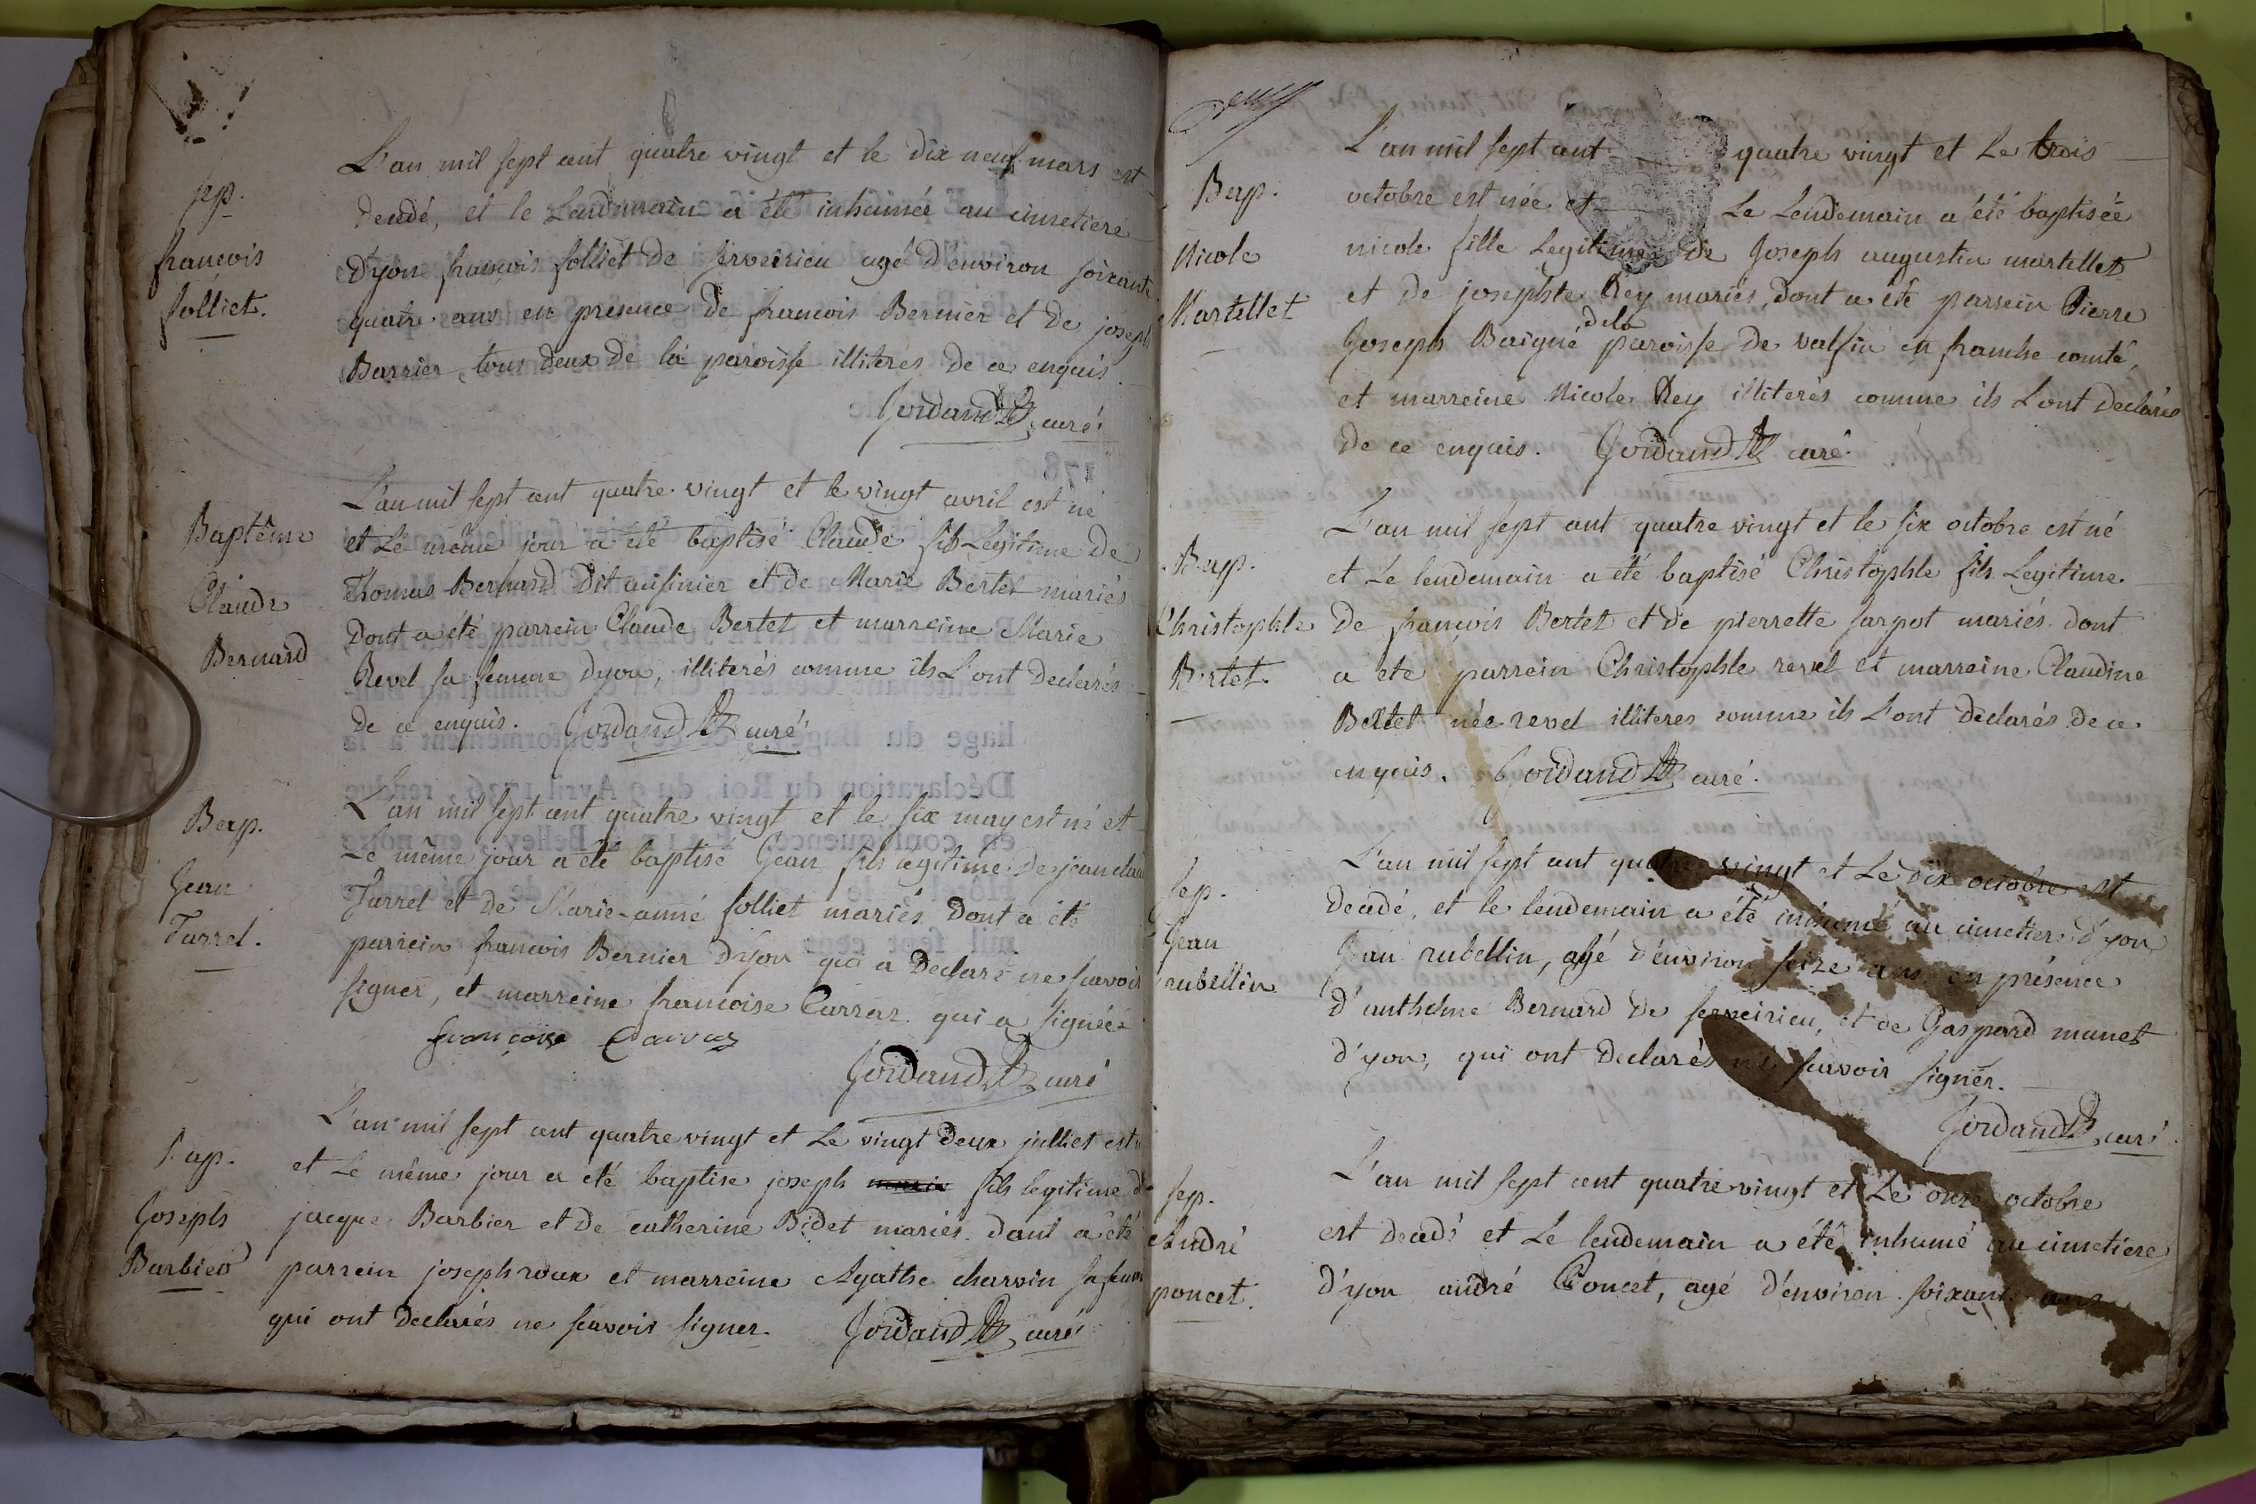 Sep.
francois
folliet.
L'an mil sept cent quatre vingt et le dix neuf mars est
decedé, et le Lendemain a été inhumée au cimetiere
d'yon francois folliet de serveirieu agé d'environ soixante
quatre ans en présence de francois Bernier et de joseph
Barrier tous deux de la paroisse illiterés de ce enquis.
Jordand curé
Baptême
Claude
Bernard
L'an mil sept cent quatre vingt et le vingt avril est né
et Le même jour a été baptisé Claude fils Legitime de
Thomas Bernard dit cusinier et de Marie Bertet mariés
Dont a été parrein Claude Bertet et marreine Marie
Revel sa femme dyon, illiterés comme ils L'ont declarés
de ce enquis. Jordand curé
Bap.
Jean
Turrel.
L'an mil sept cent quatre vingt et le six may est né et
Le même jour a été baptisé Jean fils legitime de jean claude
Turrel et de Marie-anne folliet mariés Dont a été
parrein francois Bernier d'yon qui a Declaré ne scavoir
signer, et marreine francoise Carraz qui a signée
françoise Carraz
Jordand curé
Bap.
Joseph
Barbier
L'an mil sept cent quatre vingt et Le vingt deux julliet est
et Le même jour a été baptise joseph fils legitime de
jacque Barbier et de catherine Bidet mariés. dont a été
parrein joseph roux et marreine Agathe charvin sa femme
qui ont declarés ne scavoir signer. Jordand curé
Bap.
Nicole
Martellet
L'an mil sept cent quatre vingt et Le trois
octobre est née et Le Lendemain a été baptisée
nicole fille Legitime de Joseph augustin martellet
et de josephte Rey mariés, dont a été parrein Pierre
Joseph Baigue dela paroisse de valfin en franche comté,
et marreine Nicole Rey illiterés comme ils L'ont declarés
de ce enquis. Jordand curé.
Bap.
Christophle
Bertet
L'an mil sept cent quatre vingt et le six octobre est né
et Le lendemain a été baptisé Christophle fils Legitime
de francois Bertet et de pierrette sarpot mariés dont
a ete parrein Christophle revel et marreine Claudine
Bertet née revel illiteres comme ils L'ont déclarés de ce
enquis. Jordand curé.
Sep.
Jean
rubellin
L'an mil sept cent quatre vingt et Le dix octobre est
decedé, et le lendemain a été inhumé au cimetiere d'yon
Jean rubellin, agé d'environ seize ans en présence
d'anthelme Bernard de serveirieu, et de Gaspard munet
d'yon, qui ont declarés ne scavoir signer.
Jordand curé
Sep.
André
poncet.
L'an mil sept cent quatre vingt et Le onze octobre
est decedé et Le lendemain a été inhumé au cimetiere
d'yon andré Poncet, agé d'environ soixante ans